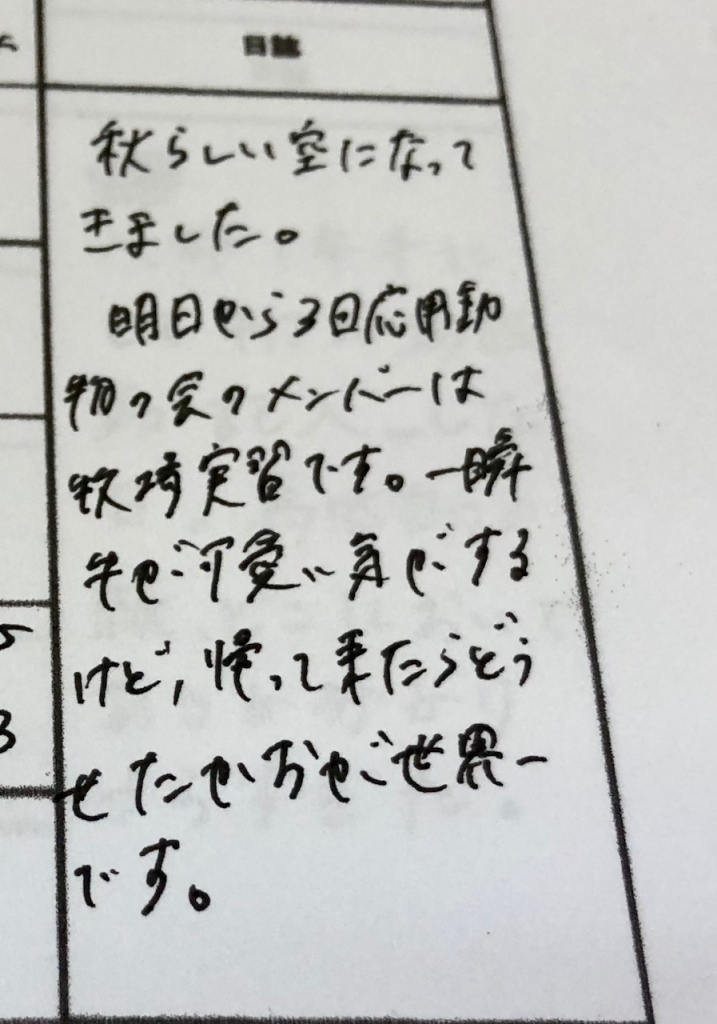 日誌
秋らしい空になって
きました。
明日から3日応用動
物の会のメンバーは
牧場実習です。一瞬
牛が可愛い気がする
けど、帰って来たらどう
せたかおが世界一
です。